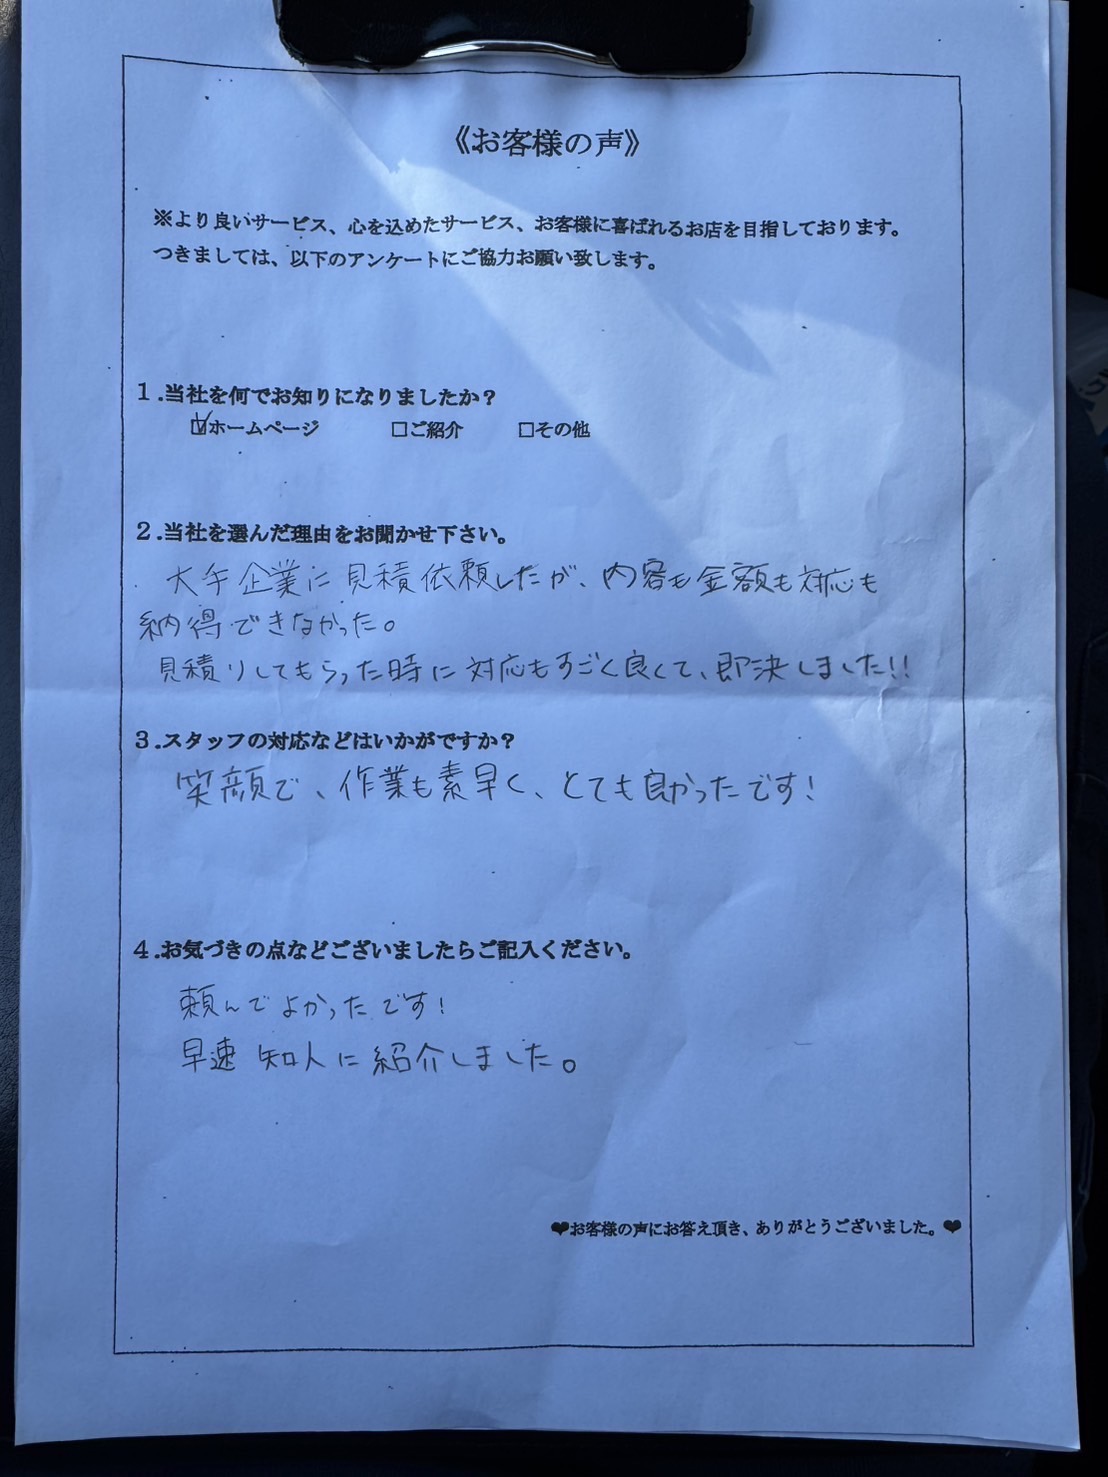 《お客様の声》
※より良いサービス、心を込めたサービス、お客様に喜ばれるお店を目指しております。
つきましては、以下のアンケートにご協力お願い致します。
1.当社を何でお知りになりましたか？
☑ホームページ □ご紹介 □その他
2.当社を選んだ理由をお聞かせ下さい。
大手企業に見積依頼したが、内容も金額も対応も
納得できなかった。
見積りしてもらった時に対応もすごく良くて、即決しました!!
3.スタッフの対応などはいかがですか？
笑顔で、作業も素早く、とても良かったです!
4.お気づきの点などございましたらご記入ください。
頼んでよかったです!
早速 知人に紹介しました。
❤お客様の声にお答え頂き、ありがとうございました。❤